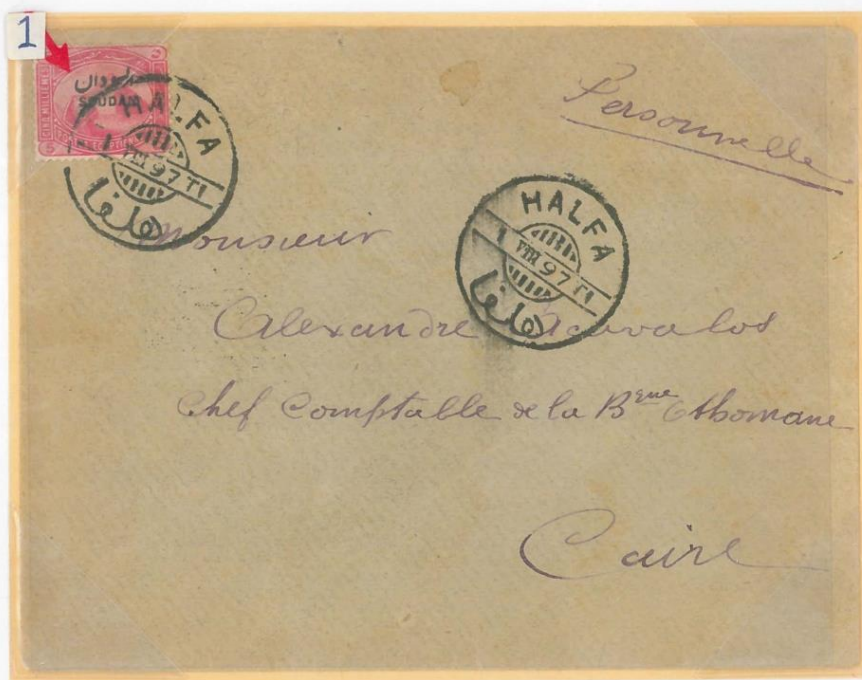 1
السودان
SOUDAN
CINQ MILLIEMES
5
5
HALFA
1 VIII 97 T1
حلفا
Personnelle
HALFA
1 VIII 97 T1
حلفا
Monsieur
Alexandre
Chef Comptable de la Bque Othomane
Caire